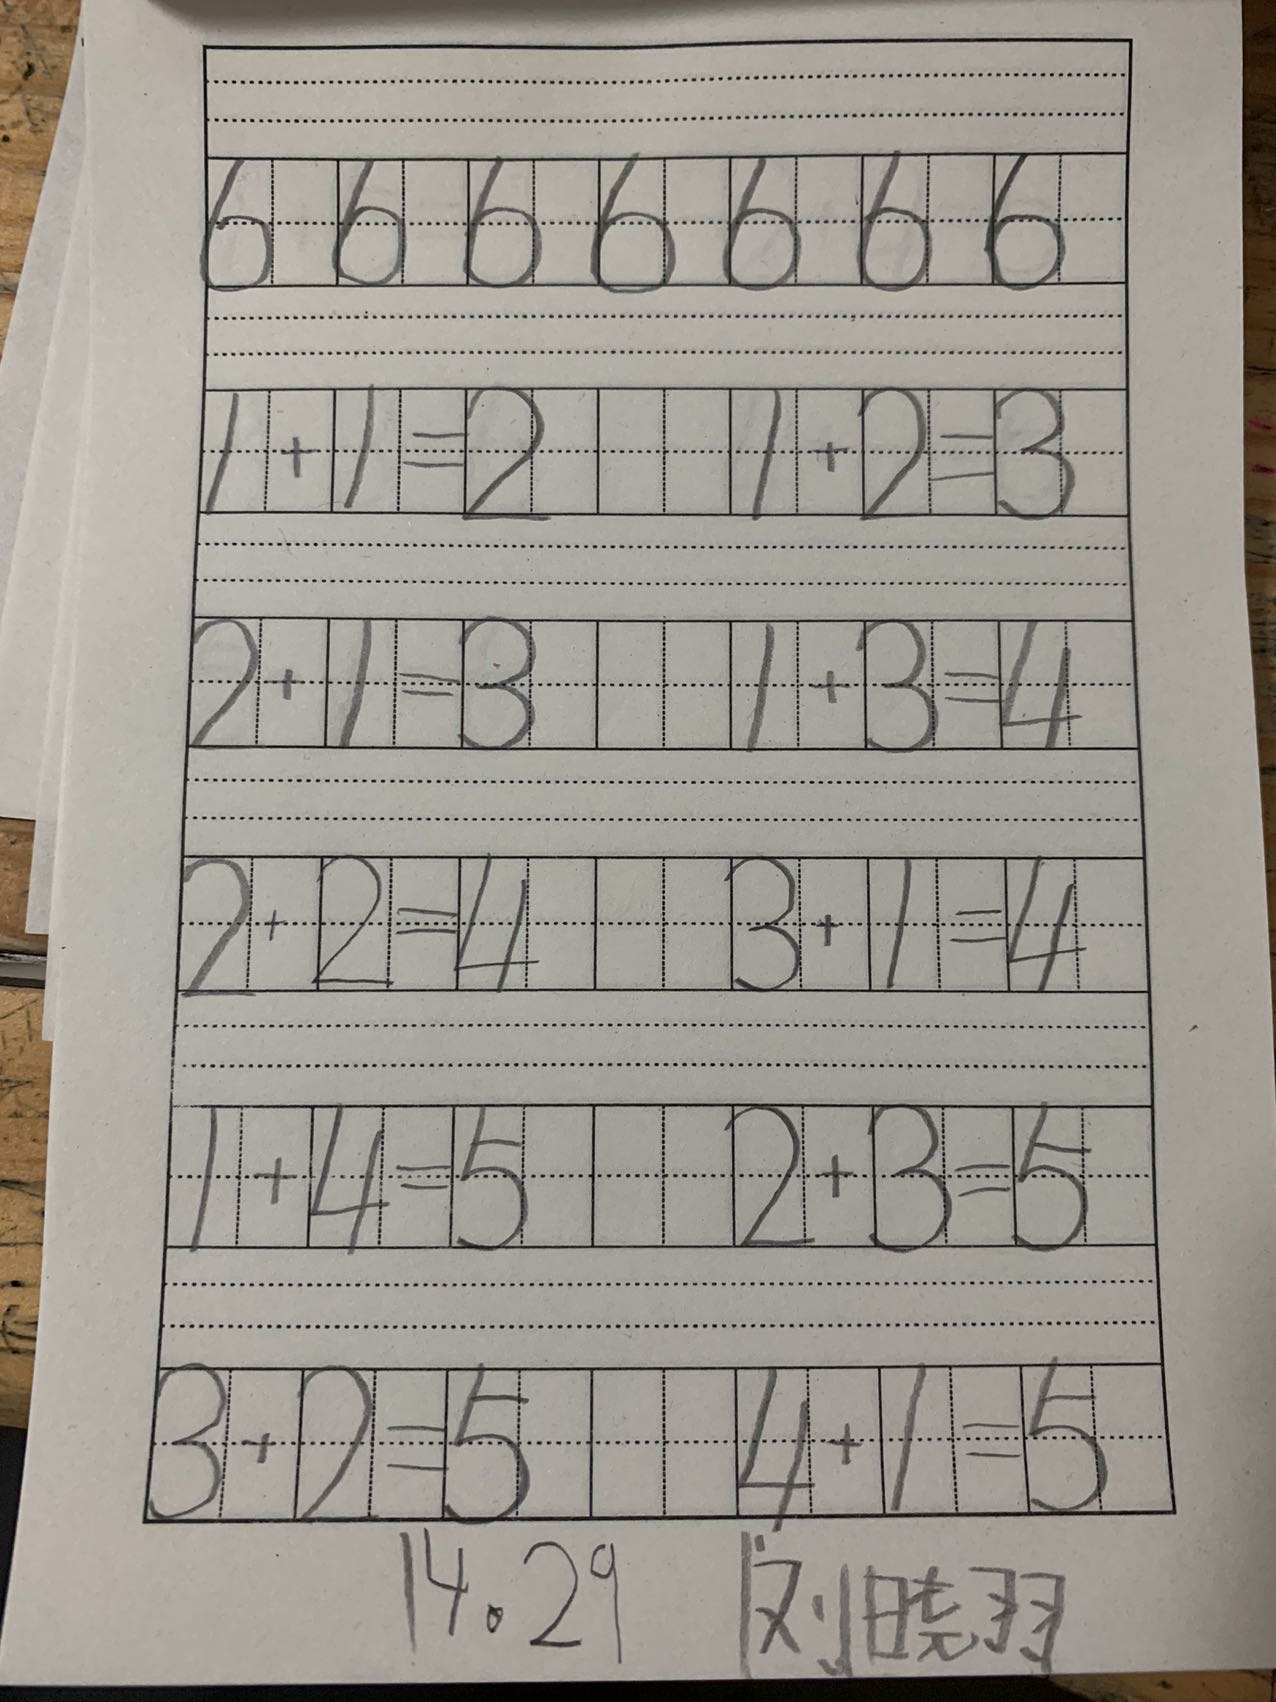 6 6 6 6 6 6 6
1+1=2 1+2=3
2+1=3 1+3=4
2+2=4 3+1=4
1+4=5 2+3=5
3+2=5 4+1=5
14.29 刘晓羽